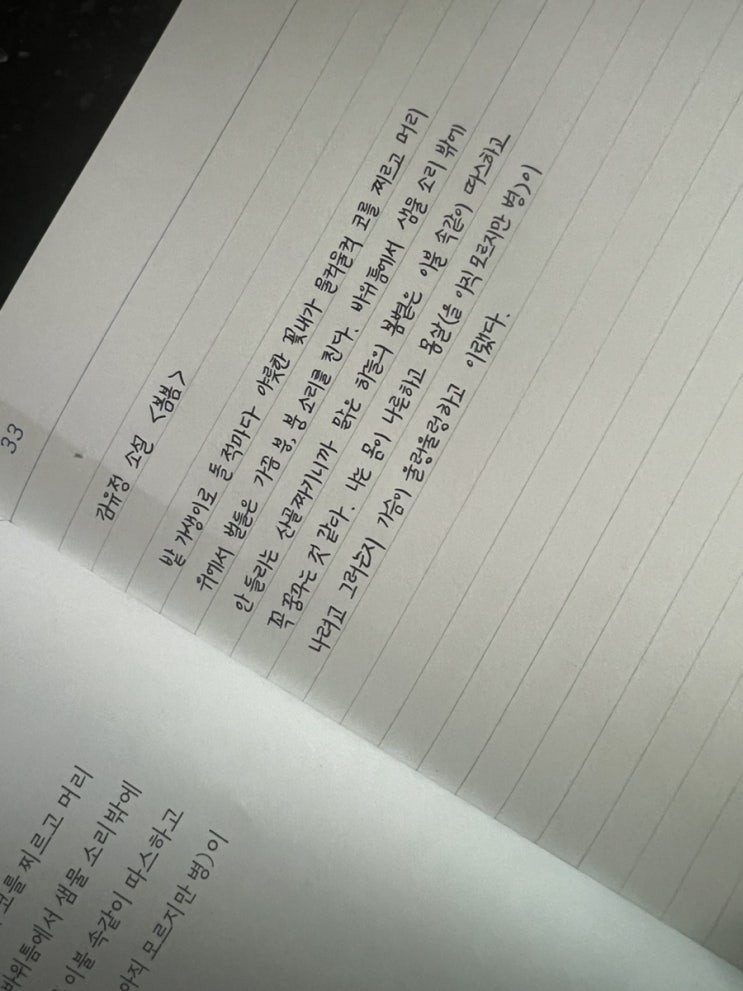 33
김유정 소설 <봄봄>
밭 가생이로 돌 적마다 야릇한 꽃내가 물컥물컥 코를 찌르고 머리
위에서 벌들은 가끔 붕, 붕 소리를 친다. 바위틈에서 샘물 소리 밖에
안 들리는 산골짜기니까 맑은 하늘의 봄볕은 이불 속같이 따스하고
꼭 꿈꾸는 것 같다. 나는 몸이 나른하고 몸살(을 아직 모르지만 병)이
나려고 그러는지 가슴이 울렁울렁하고 이랬다.
코를 찌르고 머리
바위틈에서 샘물 소리밖에
이불 속같이 따스하고
아직 모르지만 병)이